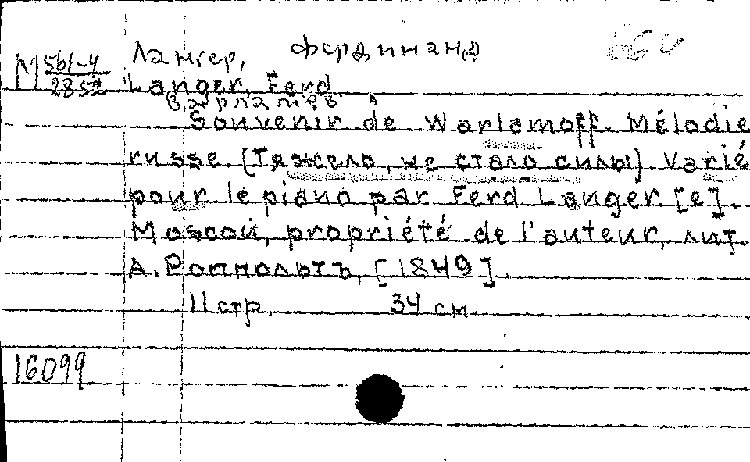 Лангер, Фердинанд
М 561-4
2852
Langer, Ferd
Варламов А
Souvenir de Warlamoff. Mélodie
russe. [Тяжело, не стало силы]. Varié
pour le piano par Ferd Langer [e].
Moscou, propriété de l'auteur, лит.
А. Раппольтъ, [1849].
11 стр. 34 см.
16099